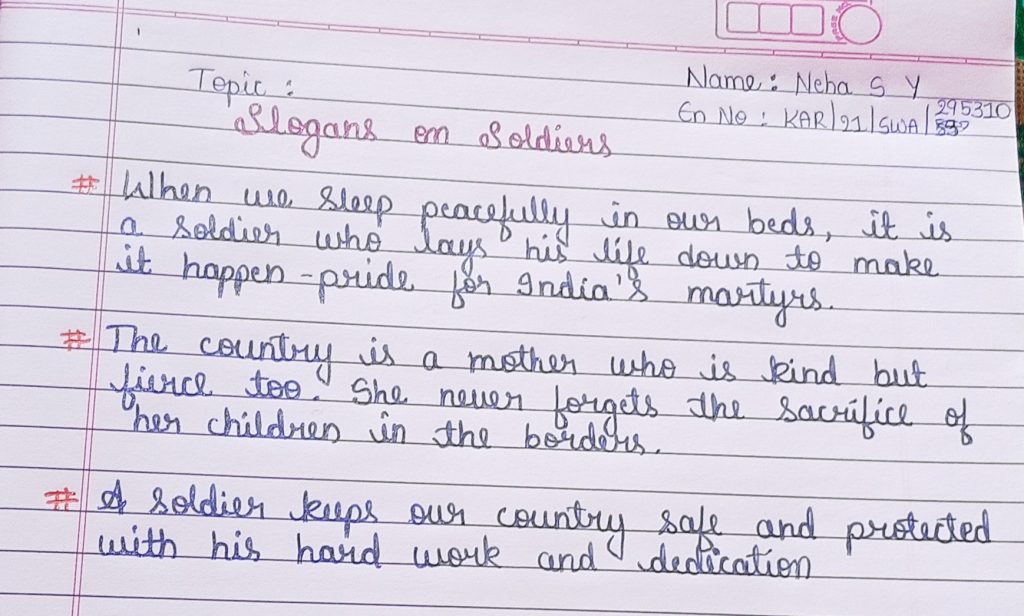 Topic :
Name : Neha S Y
Slogans on Soldiers
En No : KAR/21/SWA/295310
# When we sleep peacefully in our beds, it is
a soldier who lays his life down to make
it happen - pride for India's martyrs.
# The country is a mother who is kind but
fierce too. She never forgets the sacrifice of
her children in the borders.
# A soldier keeps our country safe and protected
with his hard work and dedication